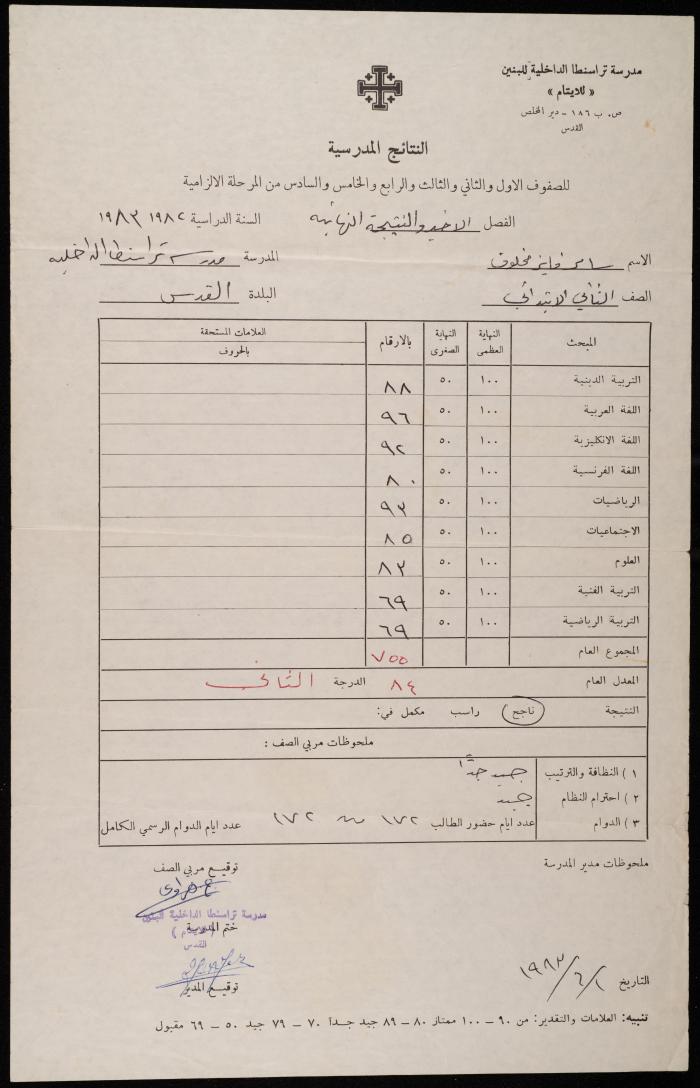 مدرسة تراسنطا الداخلية للبنين
« للايتام »
ص . ب ١٨٦ - دير المخلص
القدس
النتائج المدرسية
للصفوف الاول والثاني والثالث والرابع والخامس والسادس من المرحلة الالزامية
الفصل الاخير والنتيجة النهائية السنة الدراسية ١٩٨٢ ١٩٨٣
الاسم سامر فايز مخلوف المدرسة مدرسة تراسنطا الداخلية
الصف الثاني الابتدائي البلدة القدس
المبحث النهاية العظمى النهاية الصغرى بالارقام العلامات المستحقة بالحروف
التربية الدينية ١٠٠ ٥٠ ٨٨
اللغة العربية ١٠٠ ٥٠ ٩٦
اللغة الانكليزية ١٠٠ ٥٠ ٩٢
اللغة الفرنسية ١٠٠ ٥٠ ٨٠
الرياضيات ١٠٠ ٥٠ ٩٣
الاجتماعيات ١٠٠ ٥٠ ٨٥
العلوم ١٠٠ ٥٠ ٨٣
التربية الفنية ١٠٠ ٥٠ ٦٩
التربية الرياضية ١٠٠ ٥٠ ٦٩
المجموع العام ٧٥٥
المعدل العام ٨٤ الدرجة الثاني
النتيجة ناجح راسب مكمل في:
ملحوظات مربي الصف :
١ ) النظافة والترتيب جيد جدًا
٢ ) احترام النظام جيد
٣ ) الدوام عدد ايام حضور الطالب ١٧٢ من ١٧٢ عدد ايام الدوام الرسمي الكامل
ملحوظات مدير المدرسة توقيع مربي الصف
مدرسة تراسنطا الداخلية للبنين
( للايتام )
ختم المدرسة
القدس
توقيع المدير
التاريخ ١٩٨٣/٦/١
تنبيه: العلامات والتقدير: من ٩٠ - ١٠٠ ممتاز ٨٠ - ٨٩ جيد جداً ٧٠ - ٧٩ جيد ٥٠ - ٦٩ مقبول